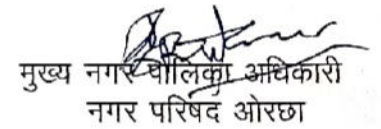 मुख्य नगर पालिका अधिकारी
नगर परिषद ओरछा